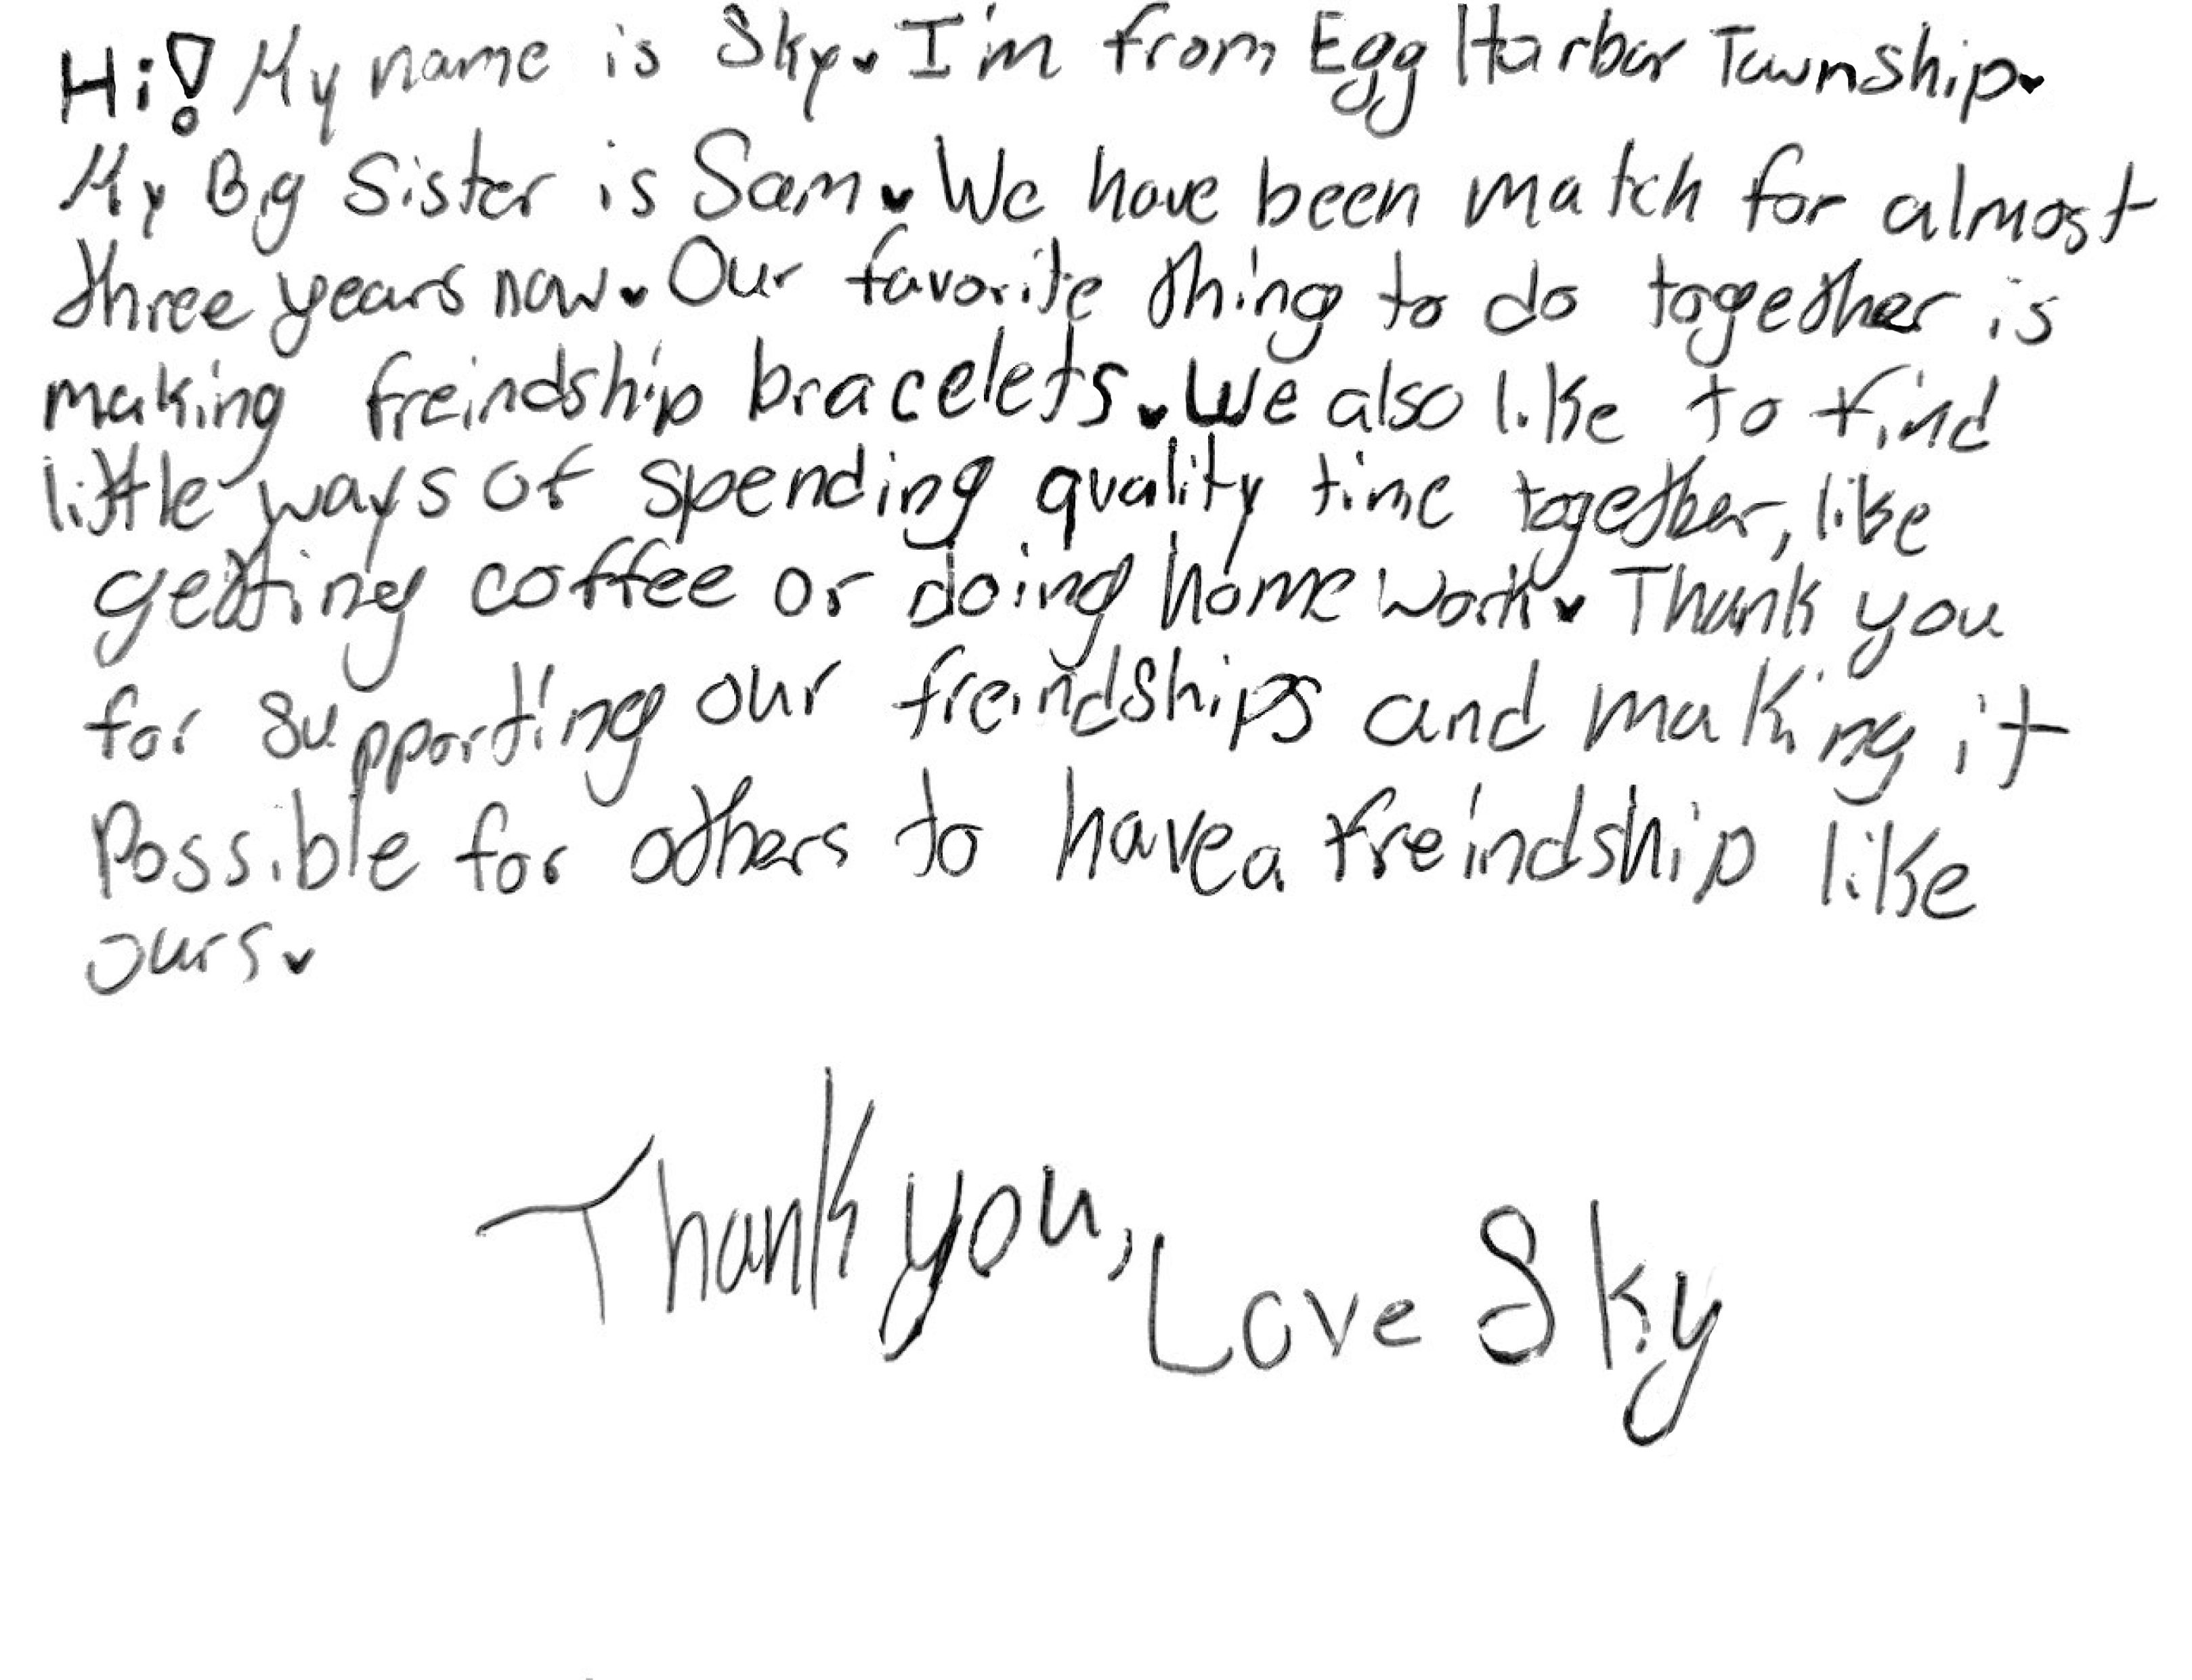 Hi! My name is Sky♥ I'm from Egg Harbor Township♥
My Big Sister is Sam♥ We have been match for almost
three years now♥ Our favorite thing to do together is
making freindship bracelets♥ We also like to find
little ways of spending quality time together, like
getting coffee or doing home work♥ Thank you
for supporting our freindships and making it
Possible for others to have a freindship like
ours♥
Thank you,
Love Sky